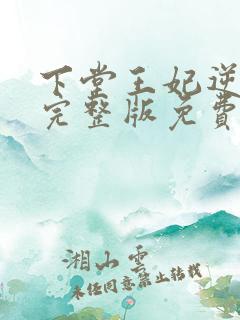 下堂王妃逆
完整版免费
湘山雲
未经同意禁止转载